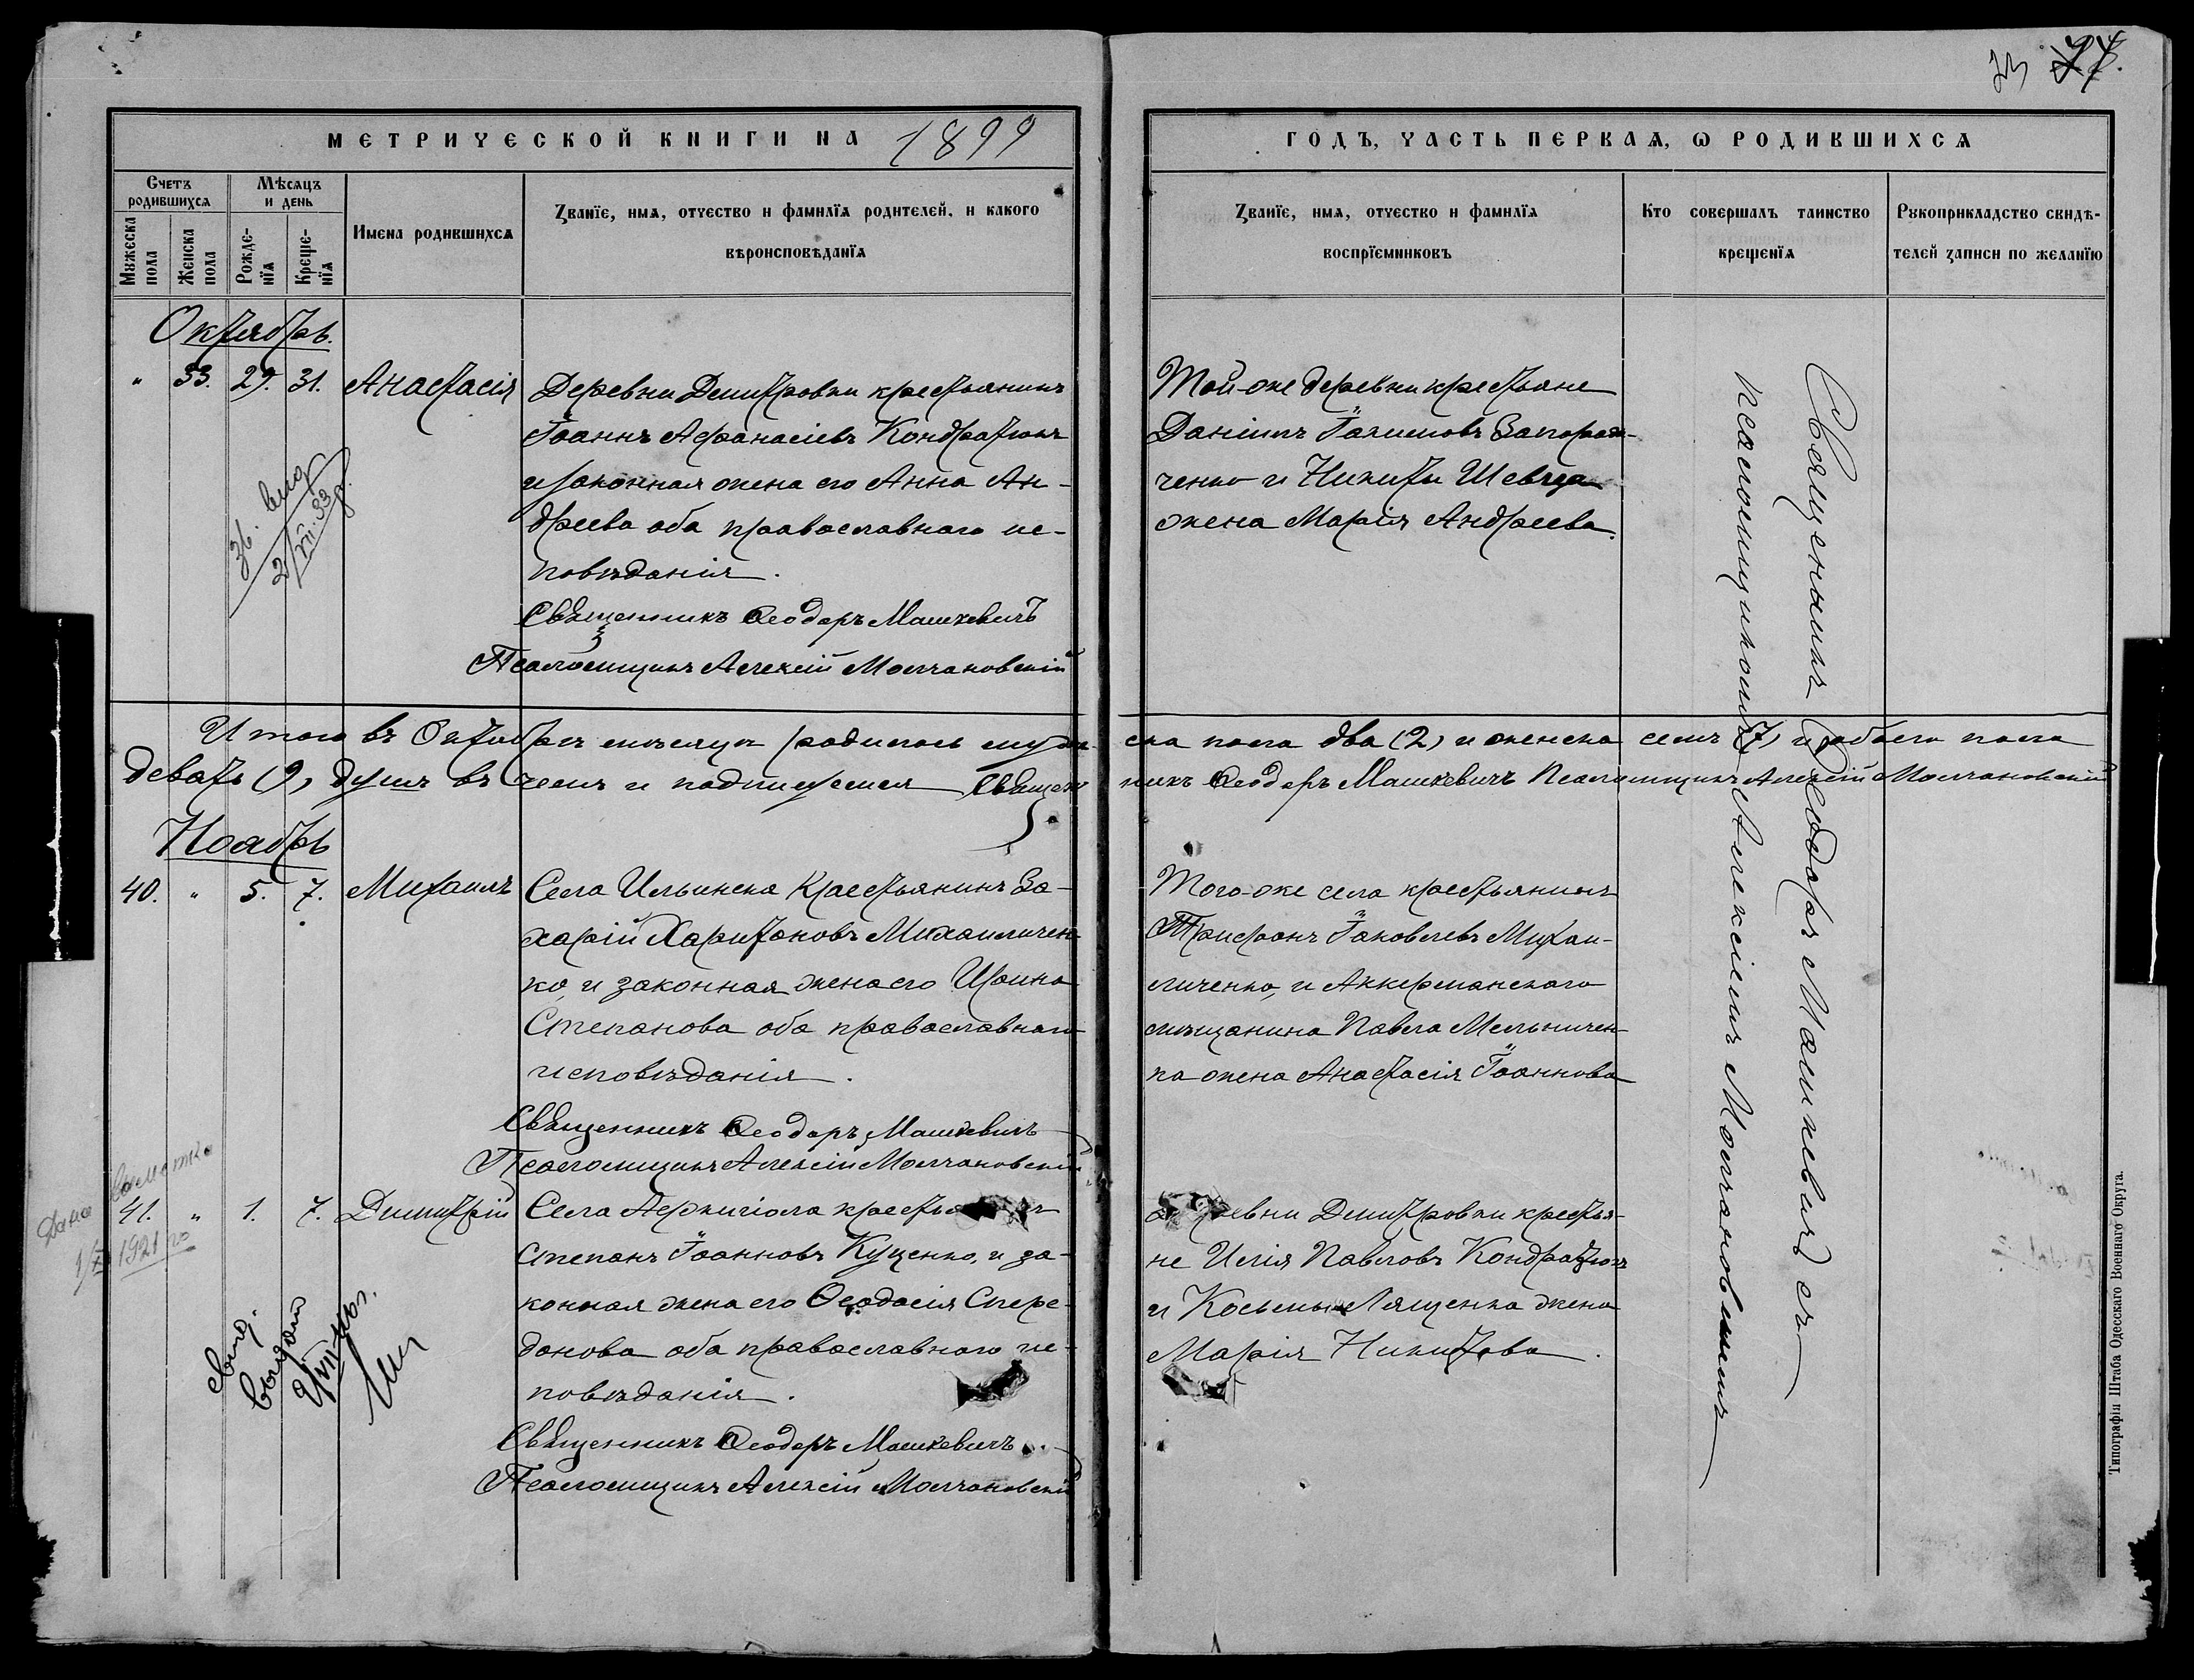 МЕТРИЧЕСКОЙ КНИГИ НА 1899
ГОДЪ, ЧАСТЬ ПЕРВАЯ, Ѡ РОДИВШИХСѦ
Счетъ родившихсѧ
Мѣсѧцъ и день
Мужеска пола
Женска пола
Рожде-нїѧ
Креще-нїѧ
Имена родившихсѧ
Званїе, имѧ, отчество и фамилїѧ родителей, и какого
вѣроисповѣданїѧ
Званїе, имѧ, отчество и фамилїѧ
воспрїемниковъ
Кто совершалъ таинство
крещенїѧ
Рукоприкладство свидѣ-
телей записи по желанїю
Октябрь.
" 33. 29. 31. Анастасія
Деревни Димитровки крестьянинъ
Іоаннъ Афанасіевъ Кондратюкъ
и законная жена его Анна Ан-
дреева оба православнаго ис-
повѣданія.
Священникъ Ѳеодоръ Машкевичъ
Псаломщикъ Алексій Молчановскій
Той-же деревни крестьяне
Даніилъ Іакимовъ Запорож-
ченко и Никиты Шевчука
жена Марія Андреева.
Итого въ Октябрѣ мѣсяцѣ родилось муже-
ска пола два (2) и женска семъ (7) и обоего пола
девять (9) душъ въ чемъ и подписуемся Священ
никъ Ѳеодоръ Машкевичъ Псаломщикъ Алексій Молчановскій
Ноябрь
40. " 5. 7. Михаилъ
Села Ильинска Крестьянинъ За-
харій Харитоновъ Михаиличен-
ко, и законная жена его Ирина
Степанова оба православнаго
исповѣданія.
Священникъ Ѳеодоръ Машкевичъ
Псаломщикъ Алексій Молчановскій
Того-же села крестьянинъ
Трифонъ Іаковлевъ Михаи-
личенко, и Аккерманскаго
мѣщанина Павла Мельничен-
ка жена Анастасія Іоаннова
41. " 1. 7. Димитрій
Села Аджигіола
Степанъ Іоанновъ Куценко, и за-
конная жена его Ѳеодосія Спире-
донова оба православнаго ис-
повѣданія.
Священникъ Ѳеодоръ Машкевичъ
Псаломщикъ Алексій Молчановскій
Димитровки крестья-
не Илія Павловъ Кондратюкъ
и Косьмы Лященка жена
Марія Никитова.
Священникъ Ѳеодоръ Машкевичъ съ
псаломщикомъ Алексіемъ Молчановскимъ
1921 го
Типографія Штаба Одесскаго Военнаго Округа.